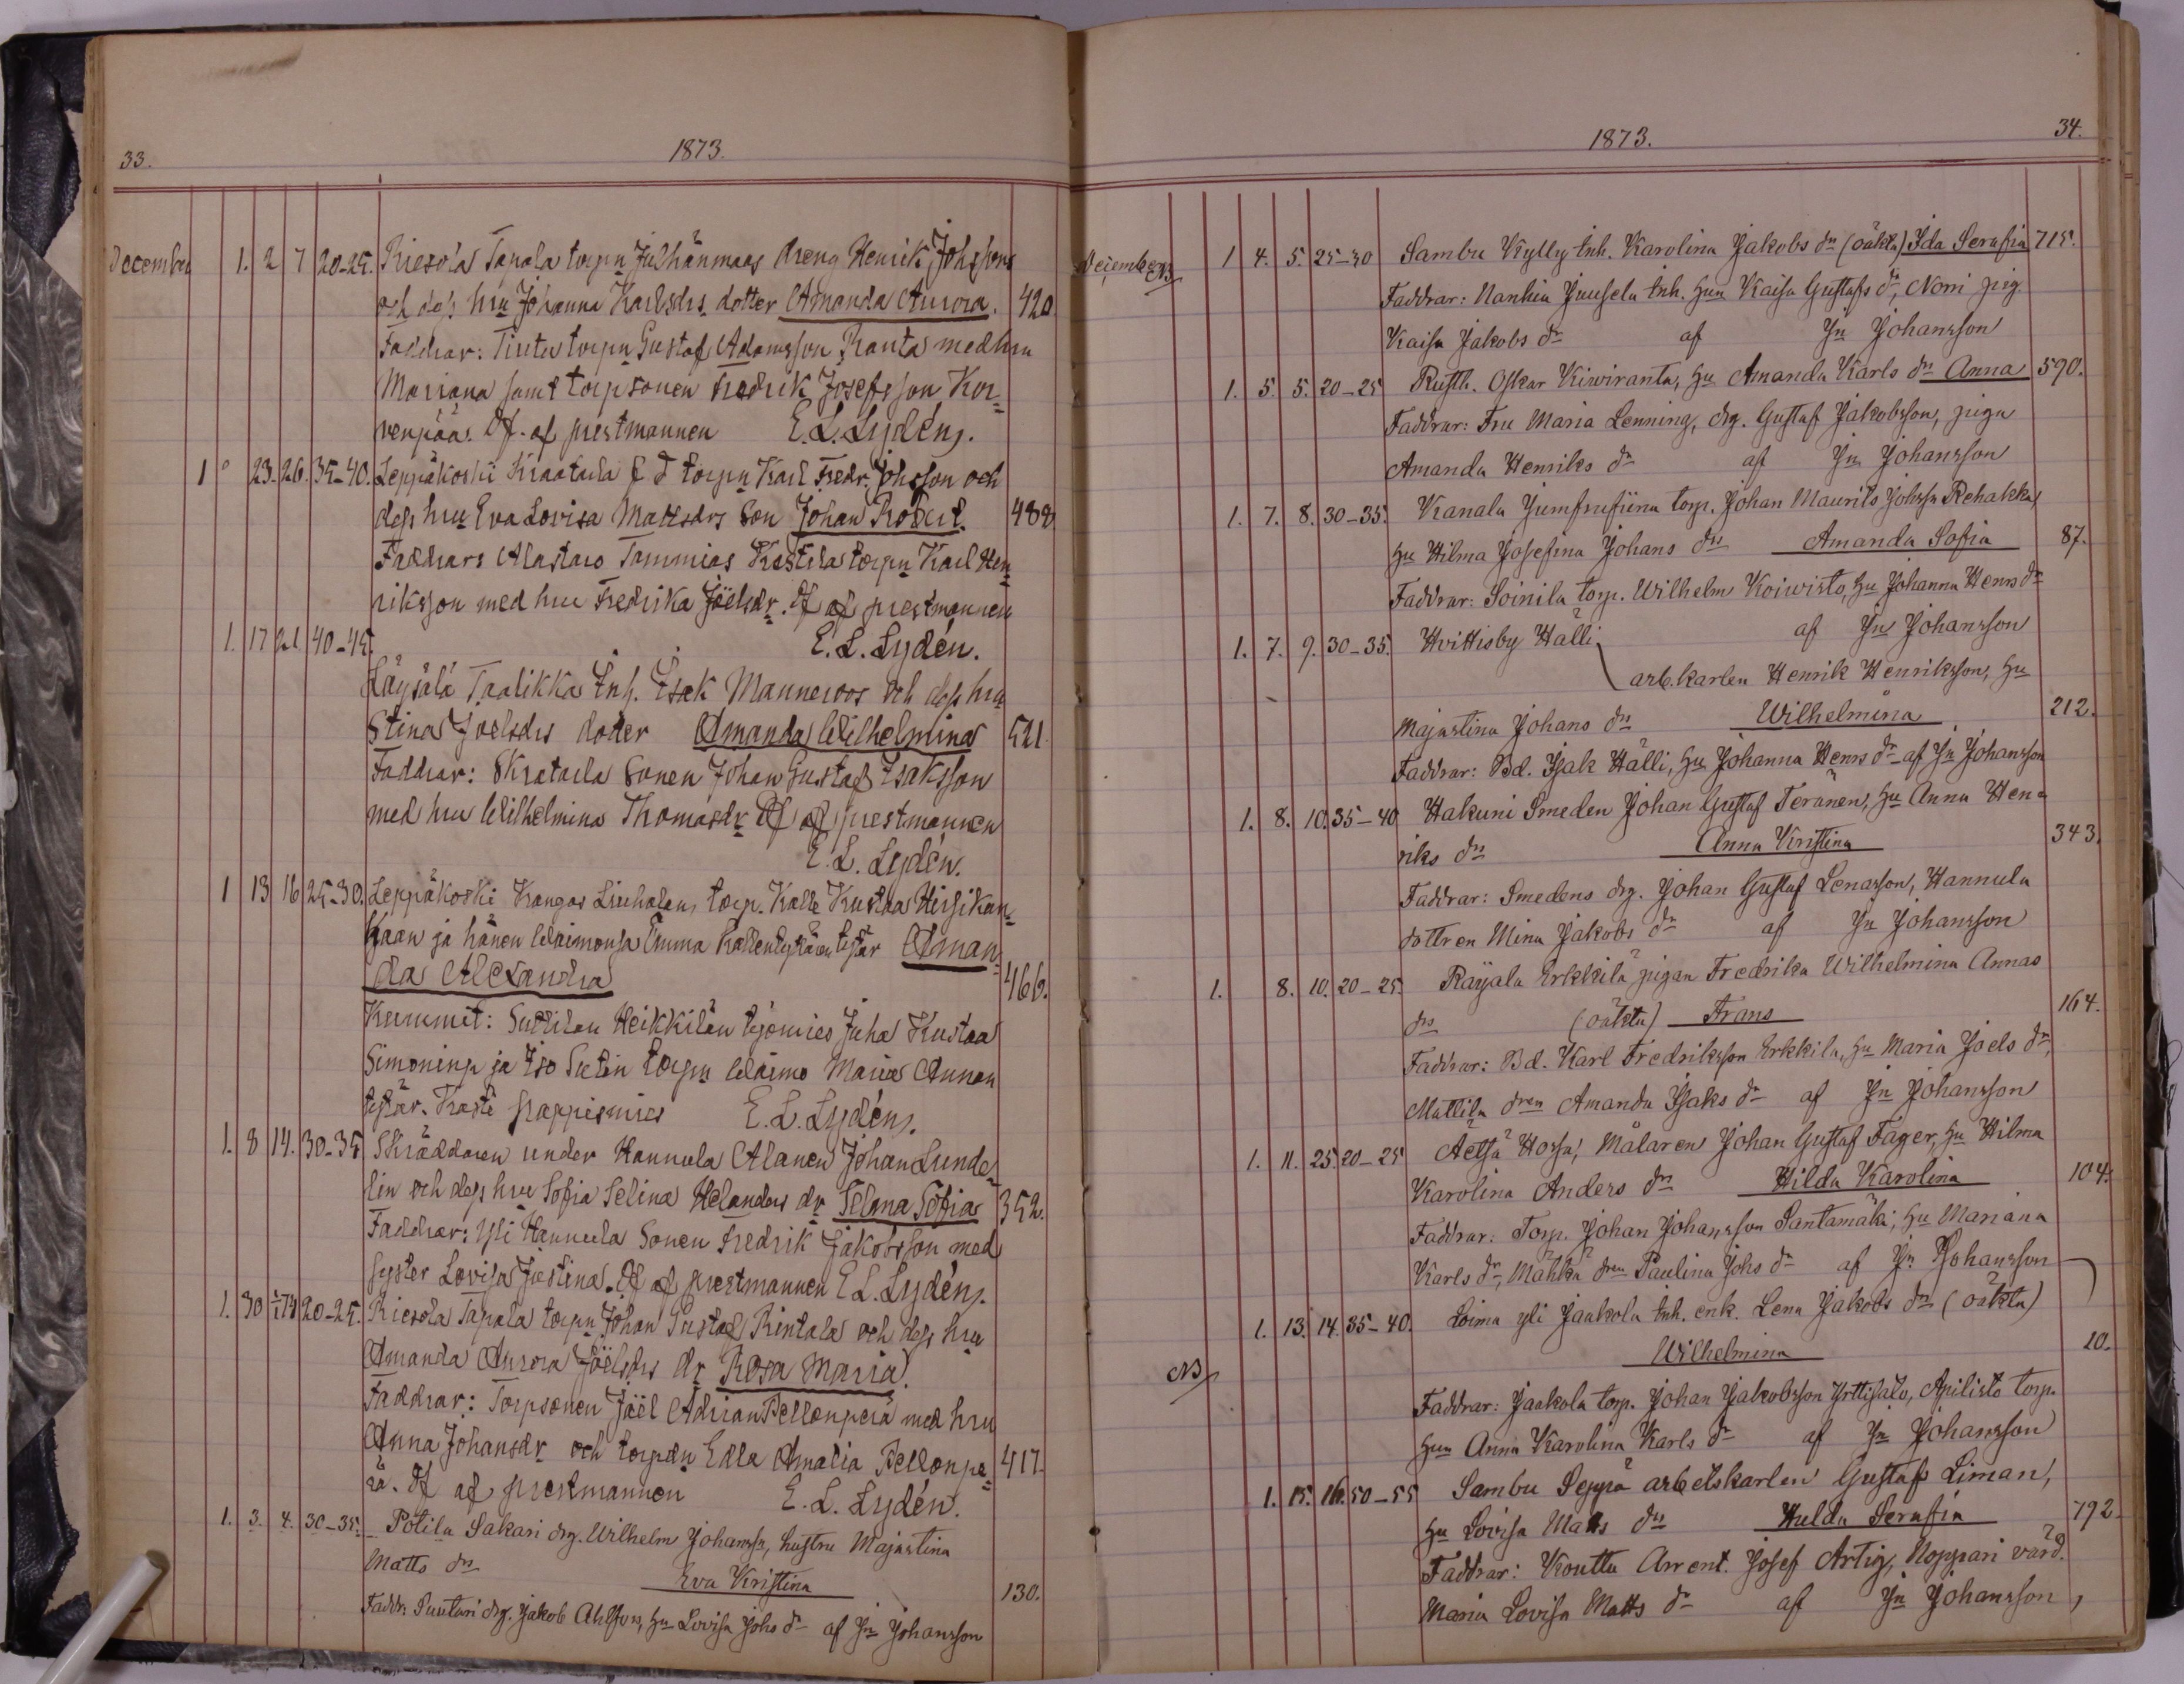 33.
1873.
December 1. 2 7 20-25. Riesola Tapala torpn Julhänmaas dreng Henrik Johssons
och dess hru Johanna Karlsdrs dotter Amanda Aurora. 420.
Faddrar: Tiutu torpn Gustaf Adamsson Ranta med hru
Mariana samt torpsonen Fredrik Josefsson Kor=
venpää. Df. af prestmannen E. L. Lydén.
1 23. 26. 35-40. Leppäkoski Kraatula f d torpn Karl Fredr. Johsson och
dess hru Eva Lovisa Mattsdrs Son Johan Robert. 488
Faddrars Alastaro Tammias Kestilä torpn Karl Hen=
riksson med hru Fredrika Joelsdr. Df af prestmannen
1. 17 21 40-45. E. L. Lydén.
Räysälä Taalikka Inh. Isak Manneroos och dess hru
Stina Joelsdrs doder Amanda Wilhelmina 521.
Faddrar: Skratarla Sonen Johan Gustaf Isaksson
med hru Wilhelmina Thomasdr Df af prestmannen
E. L. Lydén.
1 13 16 25-30. Leppäkoski Kangas Liuhalan torp. Kalle Kustaa Hirsikan=
kaan ja hänen Waimonsa Emma Kallentyttären tytär Aman=
da Alexandra 466.
Kummit: Suttilan Heikkilän tyomies Juha Kustaa
Simoninp ja Iso Sutin torpn Waimo Maria Annan
tytär. Kasti kappismies E. L. Lydén.
1. 8 14. 30-35 Skräddaren under Hannula Alanen Johan Lunde=
lin och dess hru Sofia Selina Helanders dr Selma Sofia 352.
Faddrar: Yli Hannula Sonen Fredrik Jakobsson med
syster Lovisa Justina. Df af prestmannen E. L. Lydén.
1. 30 20-25. Riesola Tapala torpn Johan Gustaf Rintala och dess hru
Amanda Aurora Joelsdrs dr Rosa Maria.
Faddrar: Torpsonen Joël Adrian Pellonperä med hru
Anna Johansdr och torpdn Edla Amalia Pellonpe= 417.
rä. Df af prestmannen E. L. Lydén.
1. 3. 4. 30-35. Potila Sakari drg. Wilhelm Johanss., hustru Majastina
Matts drs Eva Kristina 130.
Faddr. Suutari drg. Jakob Ahlfors, Hu Lovisa Johs dr af Jn Johansson
34.
1873.
December NB 1 4. 5. 25-30 Sambu Kylly Inh. Karolina Jakobs drs (oäkta) Ida Serafia 715.
Faddrar: Nanhia Juusela Inh. Hun Kaisa Gustafs dr, Norri pig.
Kaisa Jakobs dr af Jn Johansson
1. 5. 5. 20-25 Rusth. Oskar Kiwiranta, Hu Amanda Karls drs Anna 590.
Faddrar: Fru Maria Lenning, drg. Gustaf Jakobsson, piga
Amanda Henriks dr af Jn Johansson
1. 7. 8. 30-35. Kanala Jumfrufiina torp. Johan Maurits Johss. Rehakka,
Hu Hilma Josefina Johans drs Amanda Sofia 87.
Faddrar: Soinila torp. Wilhelm Koiwisto, Hu Johanna Henrs dr
af Jn Johansson
1. 7. 9. 30-35. Hvittisby Hälli
arb.karlen Henrik Henriksson, Hu
Majastina Johans drs Wilhelmina 212.
Faddrar: Bd. Isak Hälli, Hu Johanna Henrs dr af Jn Johansson
1. 8. 10. 35-40 Hakuni Smeden Johan Gustaf Teränen, Hu Anna Hen=
riks drs Anna Kristina 343.
Faddrar: Smedens drg. Johan Gustaf Lenasson, Hannula
dottren Mina Jakobs dr af Jn Johansson
1. 8. 10. 20-25. Raijala Erkkilä pigan Fredrika Wilhelmina Annas
drs (oäkta) Frans 164.
Faddrar: Bd. Karl Fredriksson Erkkila, Hu Maria Joels dr,
Mattila dren Amanda Isaks dr af Jn Johansson
1. 11. 25. 20-25 Äetsä Horsa, Målaren Johan Gustaf Fager, Hu Hilma
Karolina Anders drs Hilda Karolina 104.
Faddrar: Torp. Johan Johansson Santamäki, Hu Mariana
Karls dr, Mähkä dren Paulina Johs dr af Jn Johansson
1. 13. 14. 35-40. Loima yli Jaakola Inh. enk. Lena Jakobs drs (oäkta)
NB Wilhelmina 10.
Faddrar: Jaakola torp. Johan Jakobsson Yrttisalo, Apilisto torp.
Hun Anna Karolina Karls dr af Jn Johansson
1. 15. 16. 50-55 Sambu Seppä arbetskarlen Gustaf Liman,
Hu Lovisa Matts drs Hulda Serafia 792.
Faddrar: Kouttu Arrent. Josef Artig, Noppari värd.
Maria Lovisa Matts dr af Jn Johansson